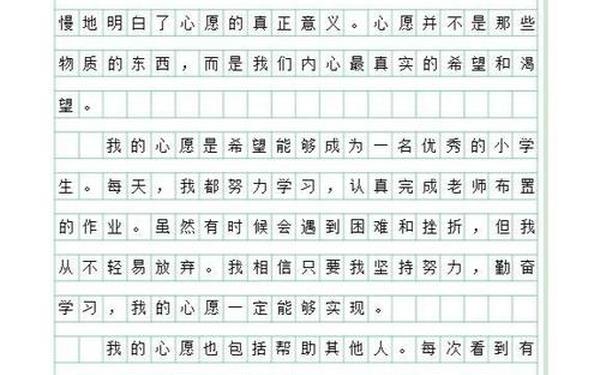 慢地明白了心愿的真正意义。心愿并不是那些
物质的东西，而是我们内心最真实的希望和渴
望。
我的心愿是希望能够成为一名优秀的小学
生。每天，我都努力学习，认真完成老师布置
的作业。虽然有时候会遇到困难和挫折，但我
从不轻易放弃。我相信只要我坚持努力，勤奋
学习，我的心愿一定能够实现。
我的心愿也包括帮助其他人。每次看到有